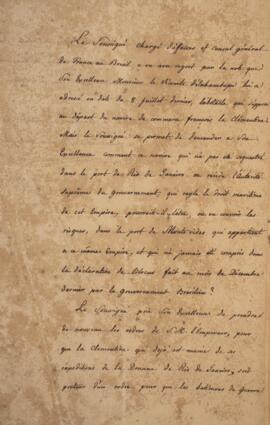 Le Soussigné chargé d'affaires et consul général
de France au Brésil a vu avec regret par la note que
Son Excellence Monsieur le Vicomte d'Inhambupe lui a
adressé en date du 8 juillet dernier,
au départ du navire de commerce français la Clémentine.
Mais le Soussigné se permet de demander à Son
Excellence comment un navire qui n'a pas été séquestré
dans le port de Rio de Janeiro, où réside l'autorité
suprême du Gouvernement, qui règle le droit maritime
de cet Empire, pourrait-il l'être, ou en courir les
risques, dans le port de Monte video, qui appartient
à ce même Empire, et qui n'a jamais été compris dans
la déclaration de blocus fait au mois de Décembre
dernier par le Gouvernement Brésilien?
Le Soussigné prie Son Excellence de prendre
de nouveau les ordres de S. M. l'Empereur, pour
que la Clémentine qui déjà est munie de ses
expéditions de la Douane de Rio de Janeiro, soit
porteur d'un ordre, pour que les bâtimens de guerre